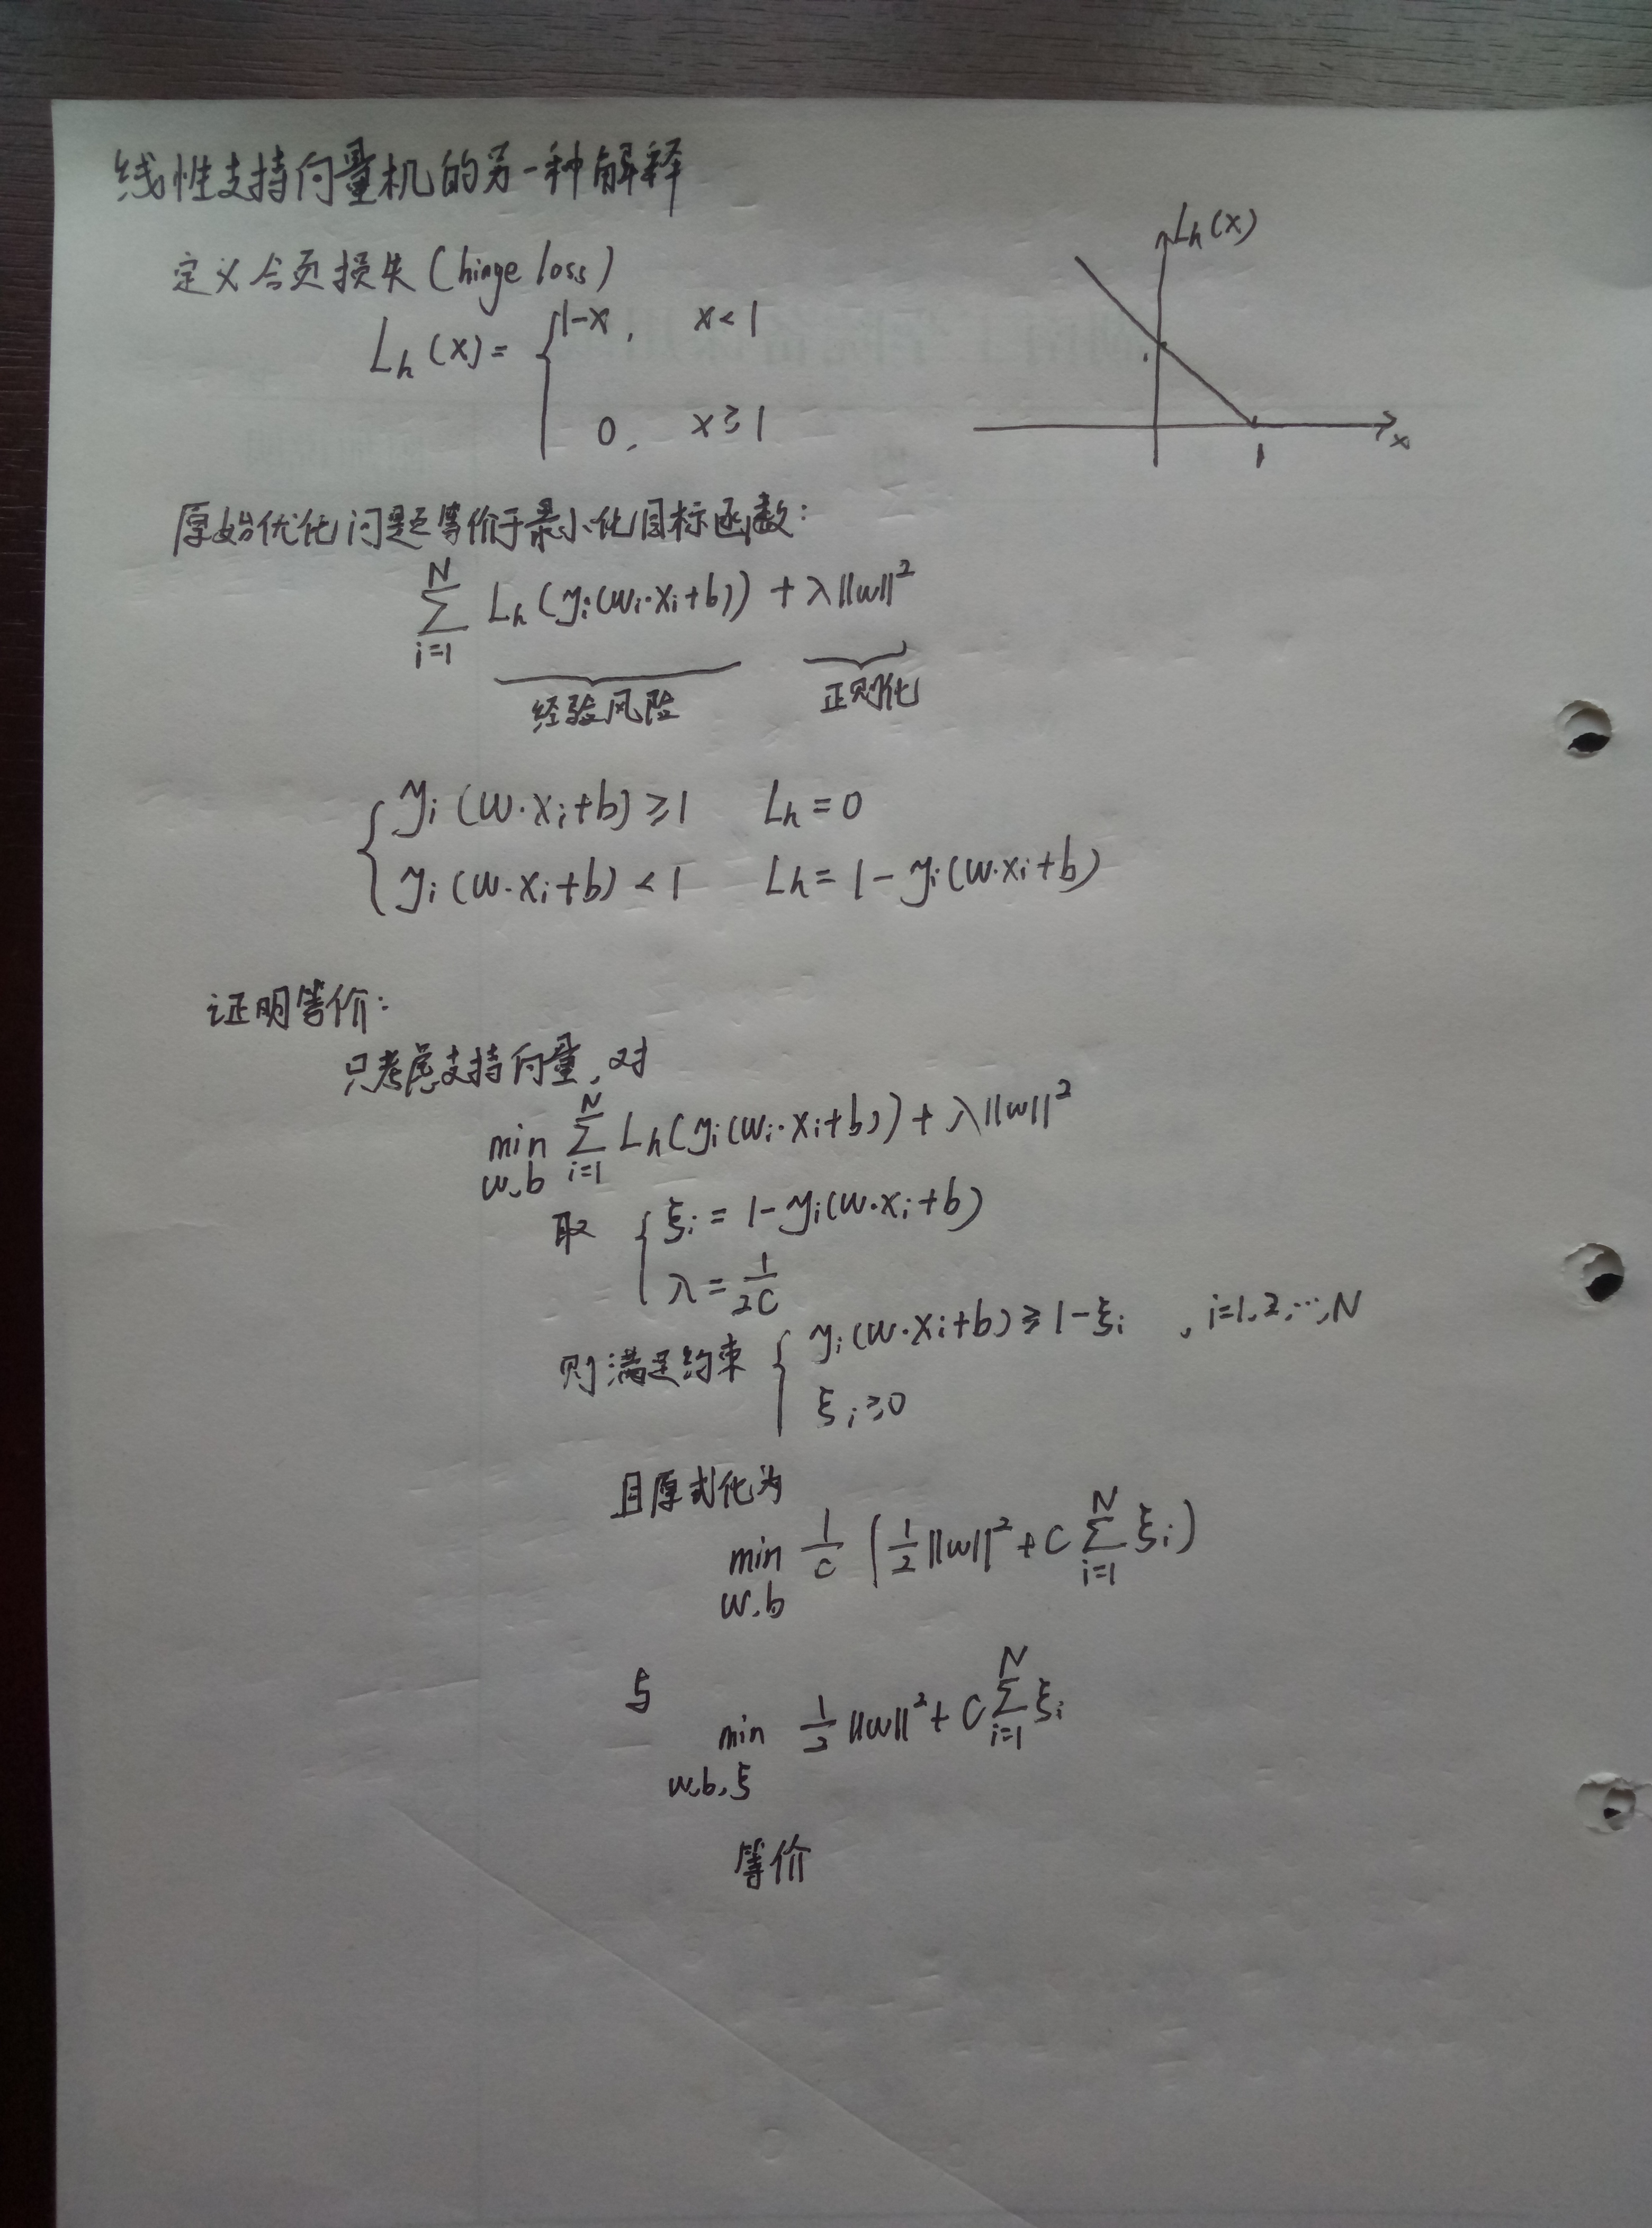 线性支持向量机的另一种解释
定义合页损失(hinge loss)
L_h(x) = { 1-x, x<1
0, x≥1
L_h(x)
1
x
原始优化问题等价于最小化目标函数:
∑_{i=1}^{N} L_h(y_i(w_i·x_i+b)) + λ||w||²
经验风险 正则化
{ y_i(w·x_i+b)≥1 L_h=0
y_i(w·x_i+b)<1 L_h=1-y_i(w·x_i+b)
证明等价:
只考虑支持向量,对
min_{w,b} ∑_{i=1}^{N} L_h(y_i(w_i·x_i+b)) + λ||w||²
取 { ξ_i = 1-y_i(w·x_i+b)
λ = 1/2C
则满足约束 { y_i(w·x_i+b)≥1-ξ_i , i=1,2,…,N
ξ_i≥0
且原式化为
min_{w,b} 1/C (1/2||w||²+C∑_{i=1}^{N} ξ_i)
与
min_{w,b,ξ} 1/2||w||²+C∑_{i=1}^{N} ξ_i
等价